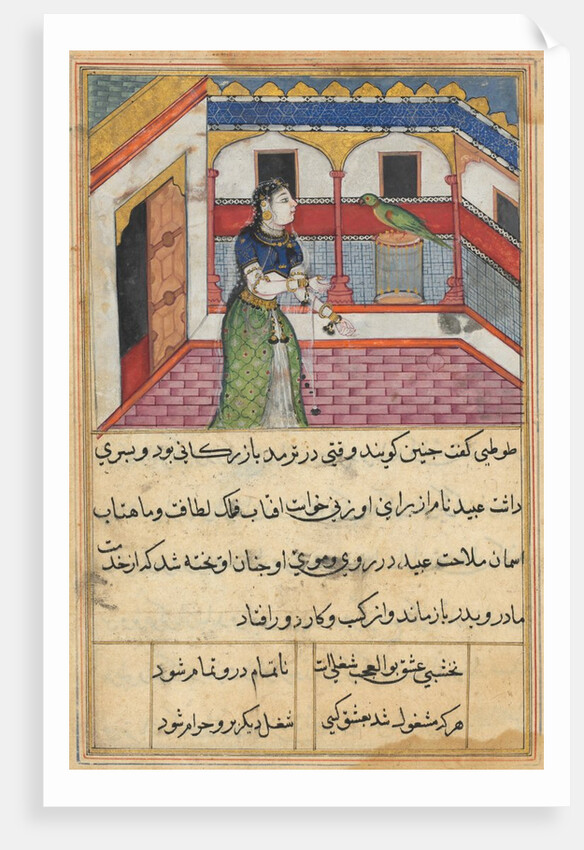 طوطی کفت جنین کویند و وقتی در ترمد بازرکانی بود و بسری
داشت عبید نام از برای او زنی خواست افتاب فلک لطافت و ماهتاب
اسمان ملاحت عبید در روی و موی او جنان اوبخته شد که از خدمت
مادر و بدر باز ماند و از کسب و کار دور افتاد
نخشبی عشق بوالعجب شغلی است
ناتمام درو تمام شود
هرکه مشغول شد بعشق کسی
شغل دیکر برو حرام شود